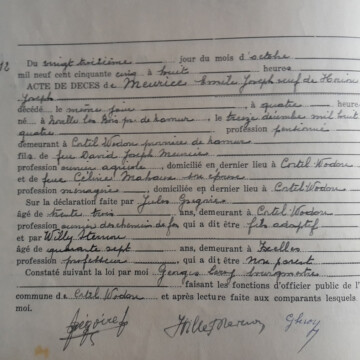 12 Du vingt troisième jour du mois d'octobre
mil neuf cent cinquante cinq à huit heures
ACTE DE DECES de Meurice Emile Joseph veuf de
Joseph
décédé le même jour à quatre heure
né à Noville les Bois pr de Namur, le treize décembre mil huit
quatre profession pensionné
demeurant à Cortil Wodon province de Namur
fils de feu David Joseph Meurice
profession ouvrier agricole, domicilié en dernier lieu à Cortil Wodon
et de feue Célinie Mahaux son épouse
profession ménagère, domiciliée en dernier lieu à Cortil Wodon
Sur la déclaration faite par Jules Grégoire
âgé de trente trois ans, demeurant à Cortil Wodon
profession ouvrier des chemins de fer, qui a dit être fils adoptif
et par Willy
âgé de quarante sept ans, demeurant à
profession professeur qui a dit être non parent
Constaté suivant la loi par moi Georges bourgmestre
faisant les fonctions d'officier public de l'
commune de Cortil Wodon et après lecture faite aux comparants lesquels
moi.